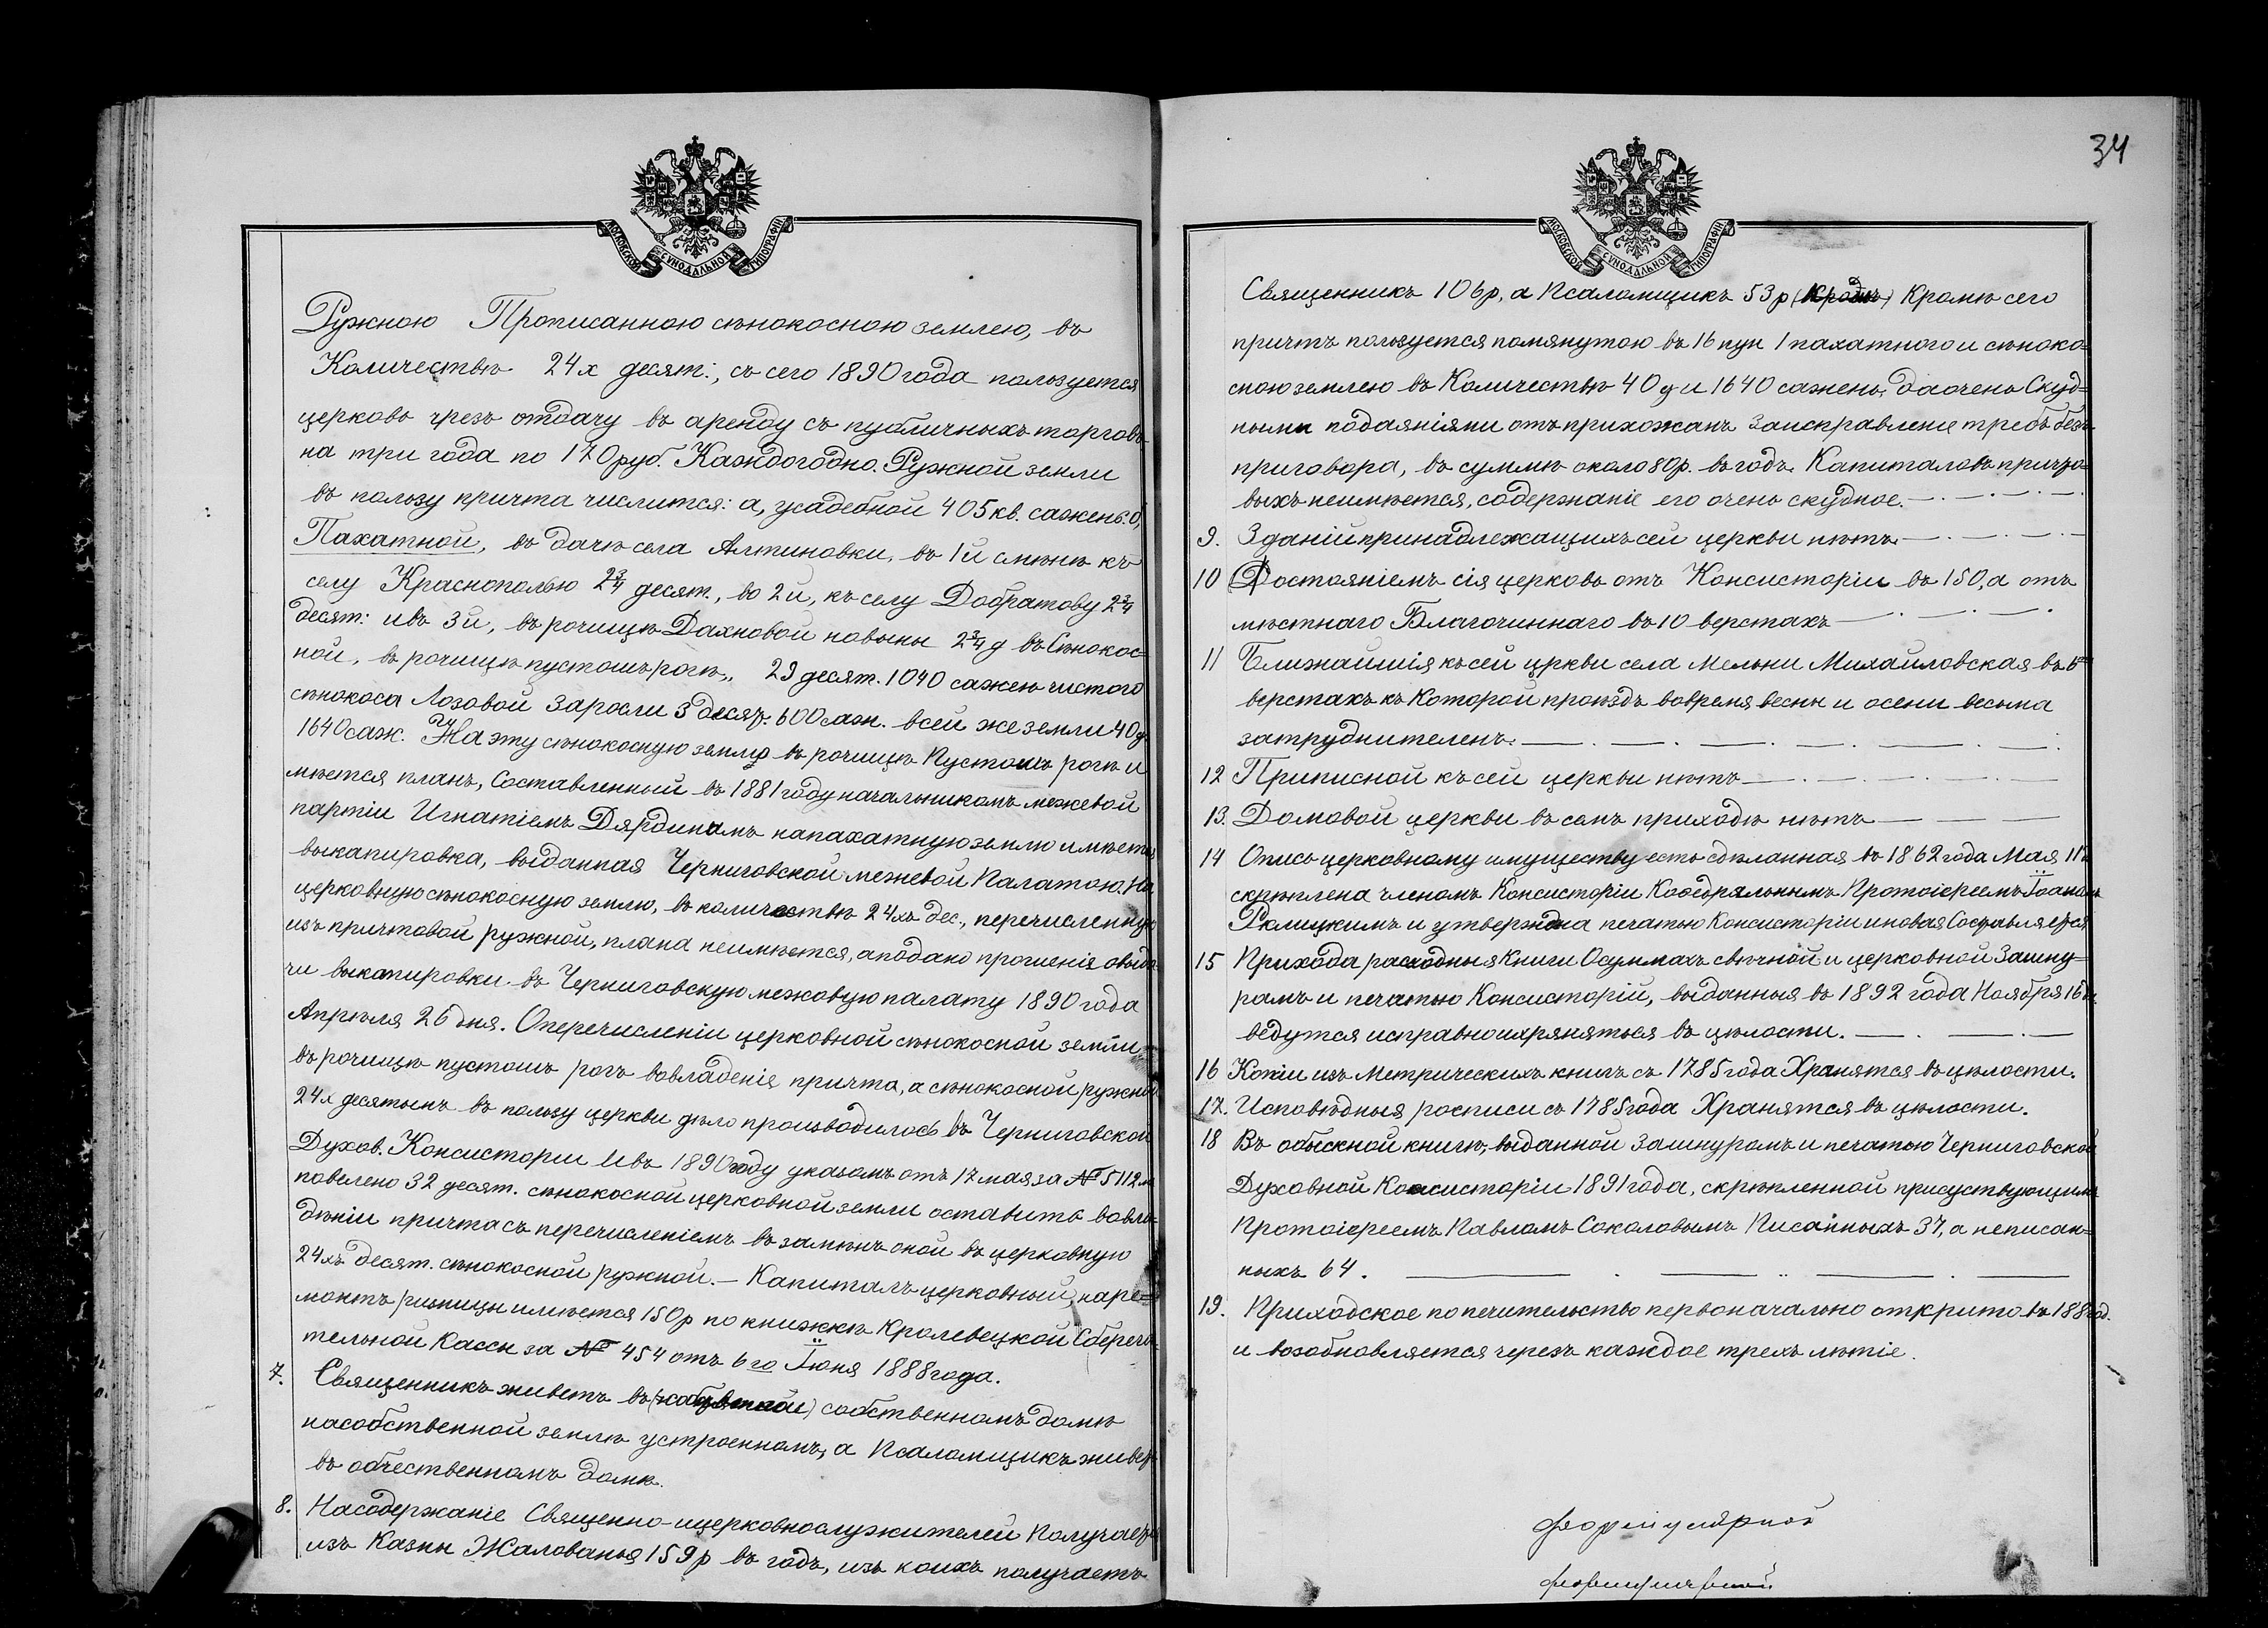 МОСКОВСКОЙ СѴНОДАЛЬНОЙ ТИПОГРАФІИ
Ружною Прописанною сѣнокосною землею, въ
Количествѣ 24х десят:, съ сего 1890 года пользуется
церковь чрезъ отдачу въ аренду съ публичныхъ торговъ
на три года по 170 руб. Каждогодно. Ружной земли
въ пользу причта числится: а, усадебной 405 кв. сажень. б,
Пахатной, въ дачѣ села Алтиновки, въ 1й смѣнѣ къ
селу Краснополью 2¾ десят., во 2й, къ селу Добратову 2¾
десят: и въ 3й, въ рочищѣ Дахновой новины 2¾ д въ Сѣнокос=
ной, въ рочищѣ пустошъ рогъ,, 29 десят. 1040 сажен чистого
сѣнокоса Лозовой Заросли 3 десят. 600 саж. всей же земли 40 д
1640 саж. На эту сѣнокосную землю въ рочищѣ Пустошъ рогъ и
мѣется планъ, Составленный въ 1881 году начальникомъ межевой
партіи Игнатіемъ Дярдинамъ на пахатную землю имѣется
выкапировка, выданная Черниговской межевой Палатою. На
церковную сѣнокосную землю, въ количествѣ 24хъ дес., перечисленную
изъ причтовой ружной, плана неимѣется, а подано прошеніе о выда
чи выкапировки въ Черниговскую межовую палату 1890 года
Апрѣля 26 дня. О перечисленіи церковной сѣнокосной земли
въ рочищѣ пустошъ рогъ во владеніе причта, а сѣнокосной ружной
24х десятынъ въ пользу церкви дѣло производилось въ Черниговской
Духов. Консистории И въ 1890 году указомъ отъ 17 мая за № 5112м
повелено 32 десят. сѣнокосной церковной земли оставить во вла=
дѣніи причта съ перечисленіемъ въ замѣнъ оной въ церковную
24хъ десят. сѣнокосной ружной. — Капиталъ церковный, на ре=
монтъ ризницы имѣется 150 р по книжкѣ Кролевецкой Сберега
тельной Кассы за № 454 отъ 6го Іюня 1888 года.
7. Священникъ живетъ въ собственномъ домѣ
на собственной землѣ устроенномъ, а Псаломщикъ живет
въ обчественномъ домѣ.
8. На содержаніе Священно-ицерковнослужителей Получается
изъ Казны Жалованья 159 р въ годъ, изъ коихъ получаетъ
34
МОСКОВСКОЙ СѴНОДАЛЬНОЙ ТИПОГРАФІИ
Священникъ 106 р, а Псаломщикъ 53 р Кромѣ сего
причтъ пользуется помянутою въ 16 пун 1 пахатного и сѣноко=
сною землею въ Количествѣ 40 д и 1640 сажень, да очень Скуд=
ными подаяніями отъ прихожанъ За исправленіе требъ безъ
приговора, въ суммѣ около 80 р. въ годъ. Капиталовъ причто=
выхъ неимѣется, содержаніе его очень скудное.
9. Зданій принадлежащихъ сей церкви нѣтъ.
10 Достояніемъ сія церковь отъ Консисторіи въ 150, а отъ
мѣстнаго Благочиннаго въ 10 верстахъ
11 Ближайшія къ сей цркви села Мельни Михайловская въ 6
верстахъ къ Которой проѣздъ вовремя весны и осени весьма
затруднителенъ.
12 Приписной къ сей церкви нѣтъ
13. Домовой церкви въ семъ приходѣ нѣтъ
14 Опись церковному имуществу есть сдѣланная въ 1862 года Мая 11 д
скрѣплена членомъ Консисторіи Кафедральнымъ Протоіереемъ Іоаномъ
и утверждена печатью Консисторіи и новая Составляется
15 Прихода расходныя Книги О суммахъ свѣчной и церковной За шну=
ромъ и печатью Консисторій, выданныя въ 1892 года Ноября 16 дн.
ведутся исправно и хряняться въ цѣлости.
16 Копіи изъ Метрическихъ книгъ съ 1785 года Хранятся въ цѣлости.
17. Исповѣдныя росписи съ 1785 года Хранятся въ цѣлости.
18 Въ обыскной книгѣ, выданной За шнуромъ и печатью Черниговской
Духовной Консисторіи 1891 года, скрѣпленной присуствующимъ
Протоіереемъ Павломъ Соколовымъ Писанныхъ 37, а неписан=
ныхъ 64.
19. Приходское попечительство первоначально открито въ 188 год.
и возобновляется черезъ каждое трехъ лѣтіе.
формулярной